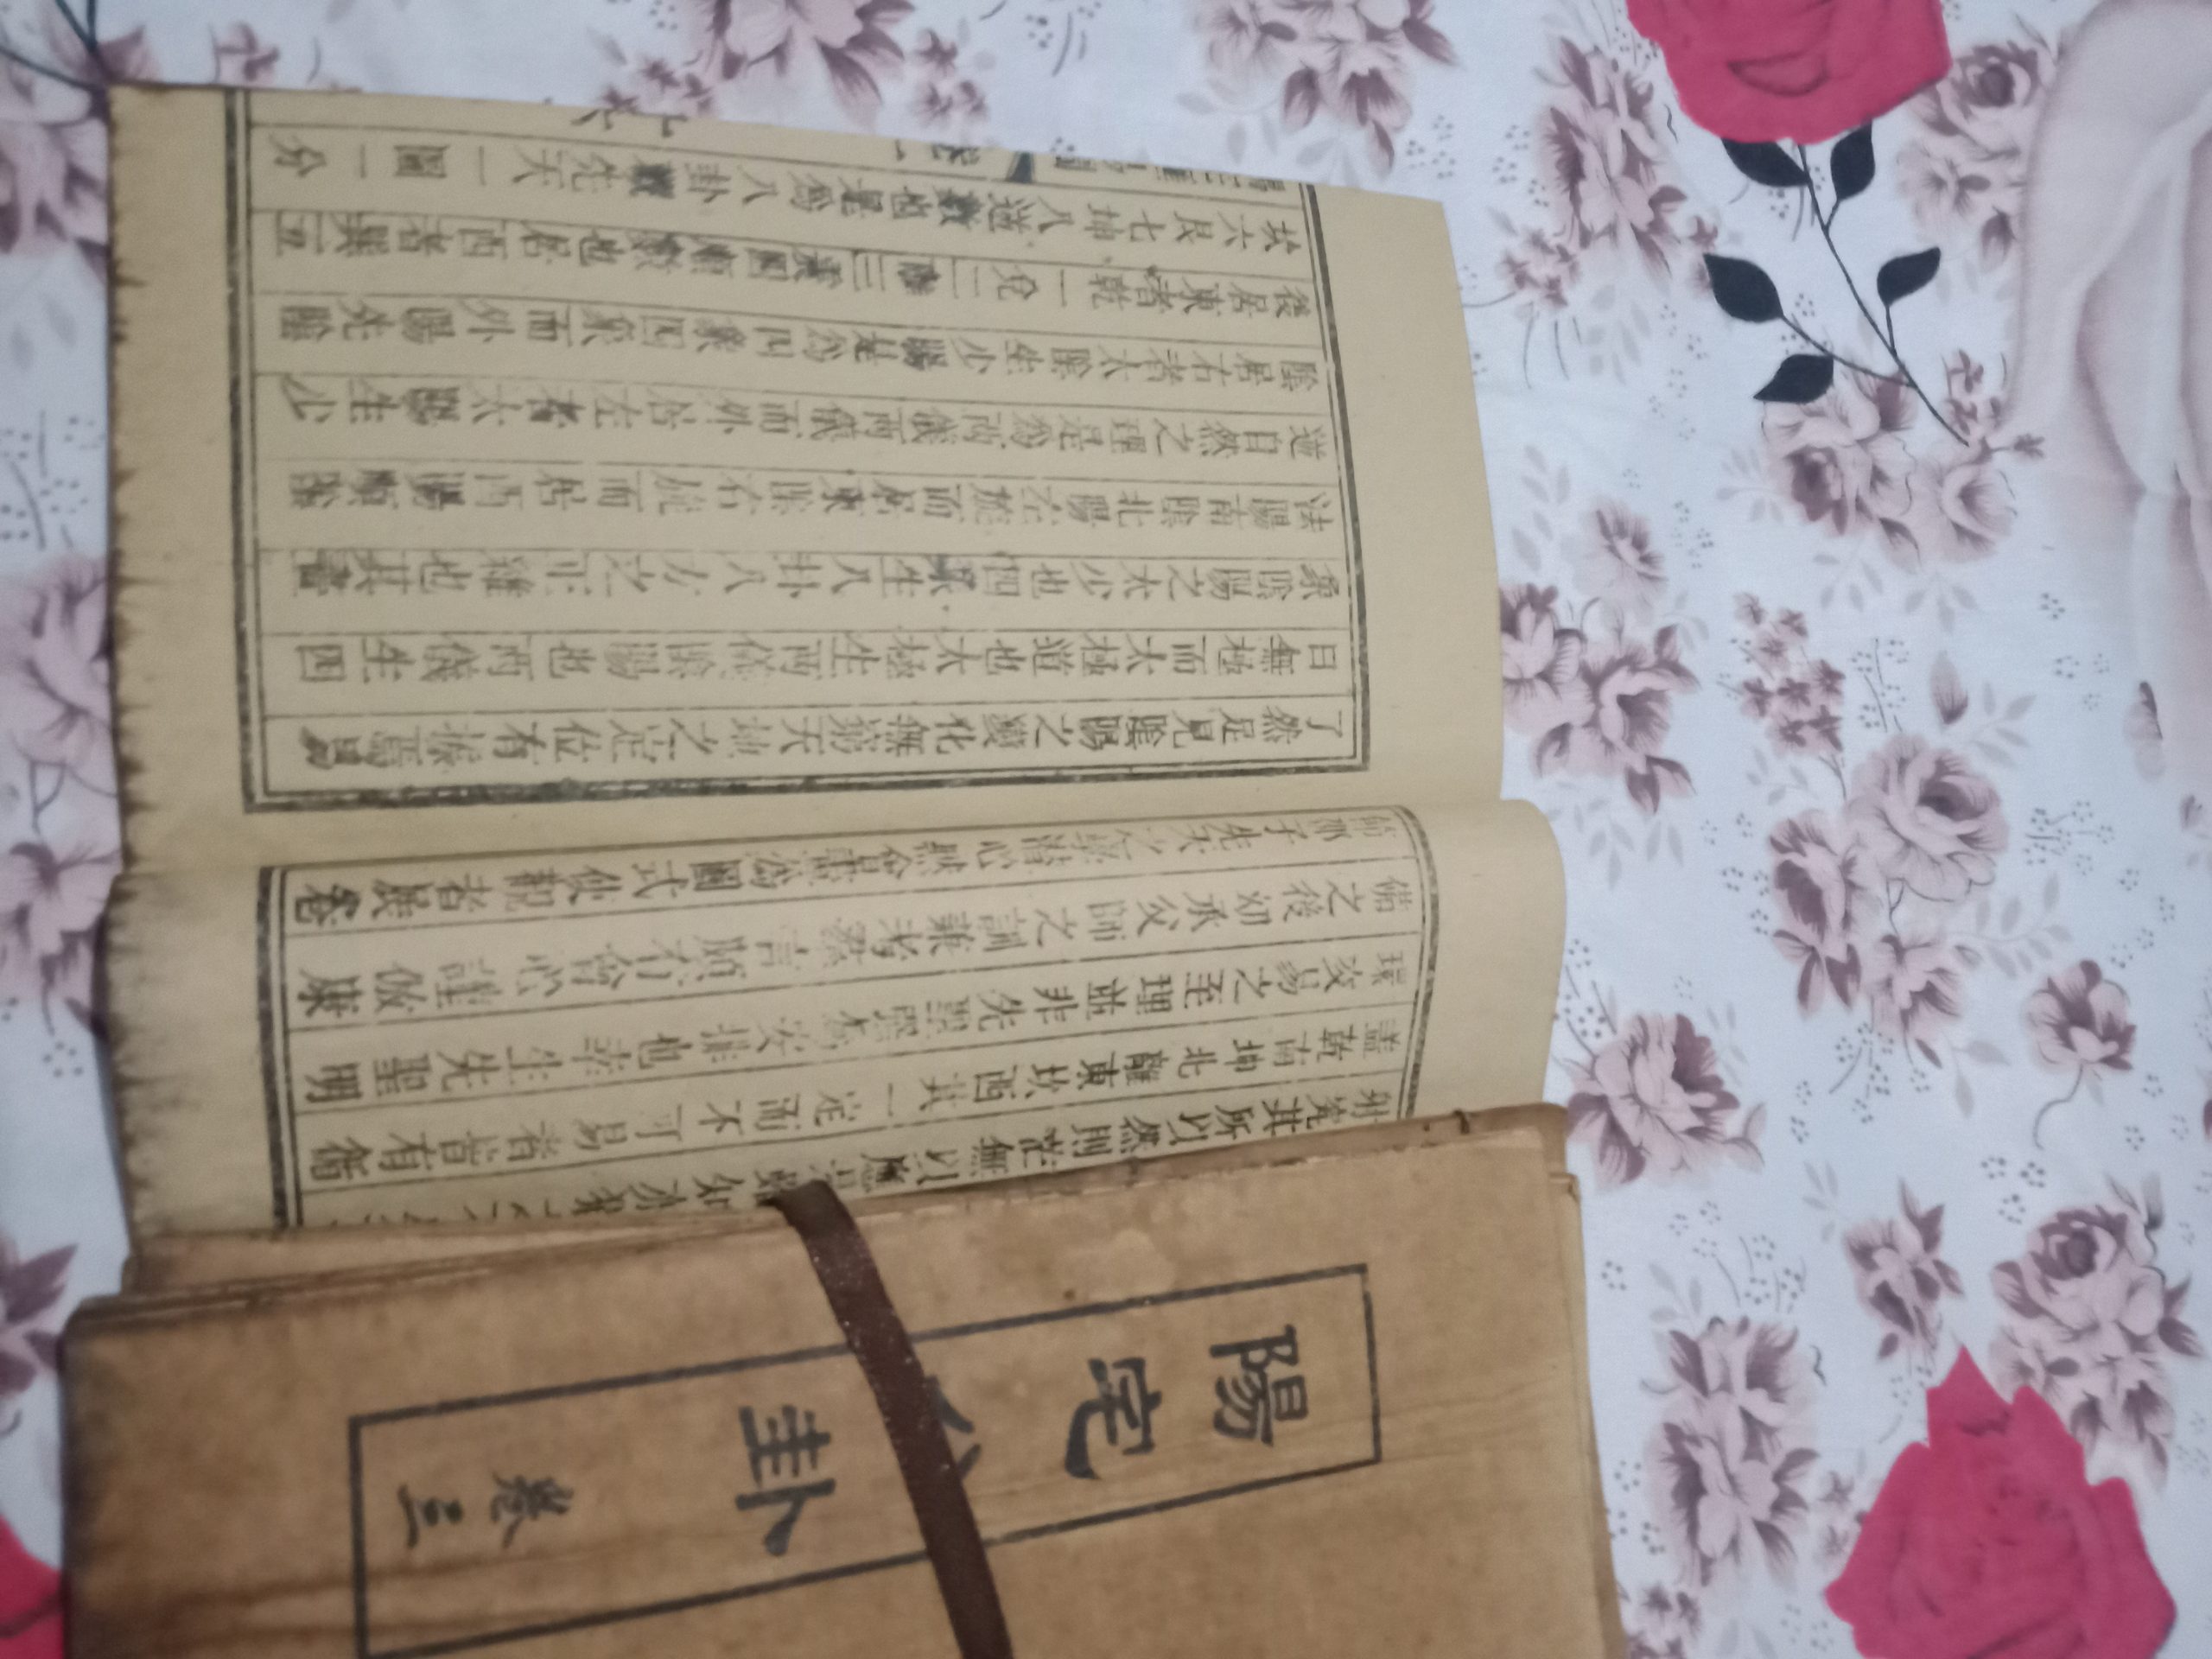 射究其所以然則茫無以應
蓋乾南坤北離東坎西其一定而不可易者皆有循
環玆易之至理並非先聖安排也生先聖明
備之後幼承父師之訓兼考眾言頗有會心謹倣康
節邵子先天之學潛心默會畫為圖式使觀者展卷
了然足見陰陽之變化無窮天地之定位有據焉易
曰無極而太極道也太極生兩儀陰陽也兩儀生四
象陰陽之太少也四象生八卦八方之正維也其畫
法陽南陰北陽左旋而居東陰右旋而居西陽順陰
逆自然之理是為兩儀兩儀而外居左者太陽生少
陰居右者太陰生少陽是為四象四象而外陽先陰
後居東者乾一兌二離三震四順數也居西者巽五
坎六艮七坤八逆數也是為八卦數先天一圖一分
陽宅卦
卷三